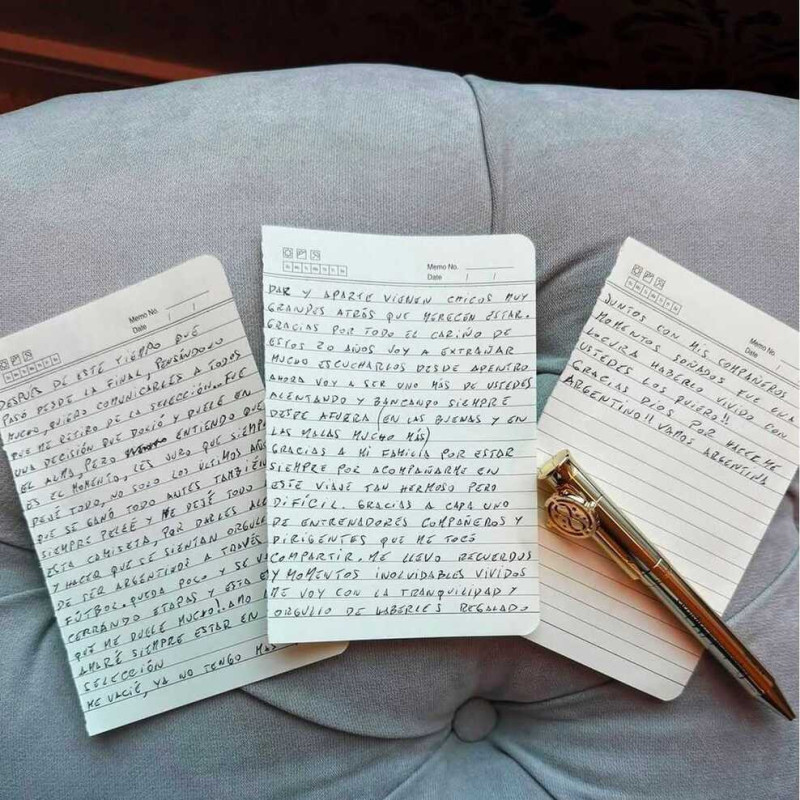 Memo No.
Date / /
DESPUES DE ESTE TIEMPO QUE
PASÓ DESDE LA FINAL, PENSANDOLO
MUCHO, QUIERO COMUNICARLES A TODOS
QUE ME RETIRO DE LA SELECCIÓN. FUE
UNA DECISIÓN QUE DOLIÓ Y DUELE EN
EL ALMA, PERO ENTIENDO QUE
ES EL MOMENTO, LES JURO QUE SIEMPRE
DEJÉ TODO, NO SOLO LOS ÚLTIMOS AÑOS
QUE SE GANÓ TODO ANTES TAMBIÉN
SIEMPRE PELEÉ Y ME DEJÉ TODO
ESTA CAMISETA, POR DARLES ALE
Y HACER QUE SE SIENTAN ORGULL
DE SER ARGENTINOS A TRAVÉS
FÚTBOL. QUEDA POCO Y SE V
CERRANDO ETAPAS Y ESTA E
QUE ME DUELE MUCHO!. AMO
AMARÉ SIEMPRE ESTAR EN
SELECCIÓN
ME VACIÉ, YA NO TENGO MÁS
Memo No.
Date / /
DAR Y APARTE VIENEN CHICOS MUY
GRANDES ATRÁS QUE MERECEN ESTAR.
GRACIAS POR TODO EL CARIÑO DE
ESTOS 20 AÑOS VOY A EXTRAÑAR
MUCHO ESCUCHARLOS DESDE ADENTRO
AHORA VOY A SER UNO MÁS DE USTEDES
ALENTANDO Y BANCANDO SIEMPRE
DESDE AFUERA (EN LAS BUENAS Y EN
LAS MALAS MUCHO MÁS)
GRACIAS A MI FAMILIA POR ESTAR
SIEMPRE POR ACOMPAÑARME EN
ESTE VIAJE TAN HERMOSO PERO
DIFÍCIL. GRACIAS A CADA UNO
DE ENTRENADORES COMPAÑEROS Y
DIRIGENTES QUE ME TOCÓ
COMPARTIR. ME LLEVO RECUERDOS
Y MOMENTOS INOLVIDABLES VIVIDOS
ME VOY CON LA TRANQUILIDAD Y
ORGULLO DE HABERLES REGALADO
Memo No.
Date /
JUNTOS CON MIS COMPAÑEROS
MOMENTOS SOÑADOS FUE UNA
LOCURA HABERLO VIVIDO CON
USTEDES LOS QUIERO!!
GRACIAS DIOS POR HACERME
ARGENTINO!! VAMOS ARGENTINA